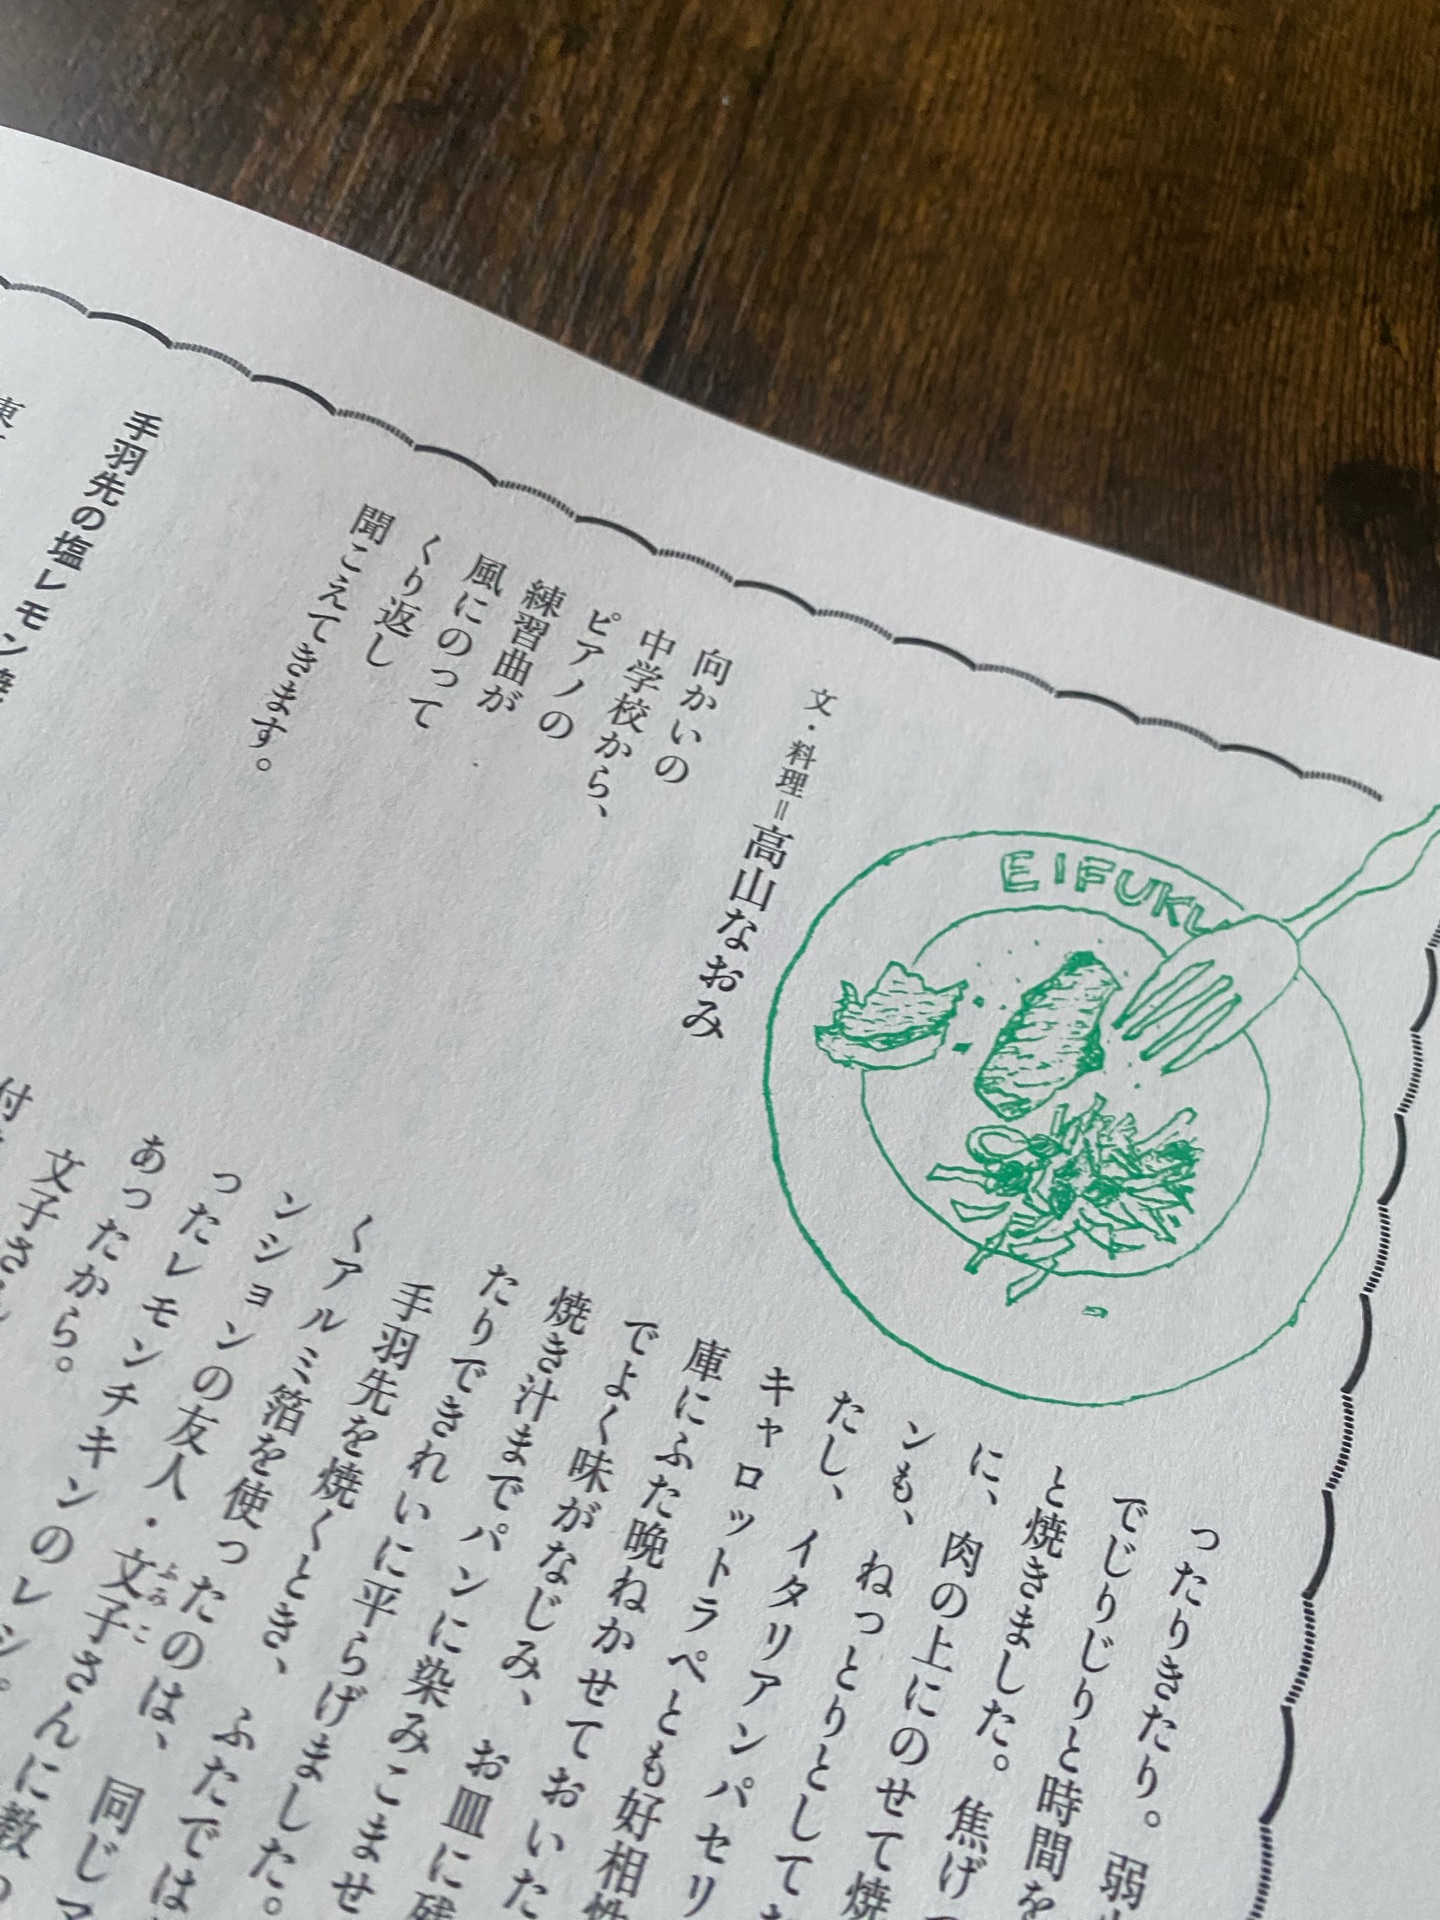 EIFUKU
文・料理＝高山なおみ
向かいの
中学校から、
ピアノの
練習曲が
風にのって
くり返し
聞こえてきます。
手羽先の塩レモン焼
ったりきたり。弱
でじりじりと時間を
と焼きました。焦げ
に、肉の上にのせて焼
ンも、ねっとりとして
たし、イタリアンパセリ
キャロットラペとも好相性
庫にふた晩ねかせておいた
でよく味がなじみ、お皿に残
焼き汁までパンに染みこませ
たりできれいに平らげました。
手羽先を焼くとき、ふたでは
くアルミ箔を使ったのは、同じマ
ンションの友人・文子さんに教わ
ふみこ
ったレモンチキンのレシ。
あったから。
文子さん
付